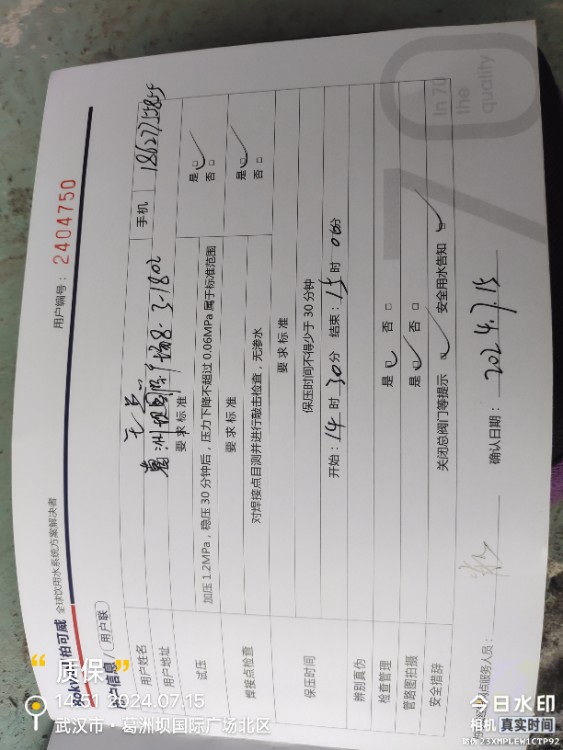 柏可威 全球饮用水系统方案解决者
用户编号： 2404750
用户信息/（用户联）
用户姓名 手机 18627775855
用户地址 葛洲坝国际广场8-3-1802
要求标准
试压 加压1.2MPa，稳压30分钟后，压力下降不超过0.06MPa属于标准范围 是□ 否□
要求标准
焊接点检查 对焊接点目测并进行敲击检查，无渗水 是□ 否□
要求标准
保压时间 保压时间不得少于30分钟
开始：14时30分 结束：15时06分
辨别真伪
检查管理 是 否□
管路图拍摄 是 否□
安全措辞 关闭总阀门等提示 安全用水告知
服务人员： 确认日期： 2024.7.15
In 70
the
quality
70
“质保”
14:51 2024.07.15
武汉市·葛洲坝国际广场北区
今日水印
相机 真实时间
防伪 23XMPLEW1CTP92